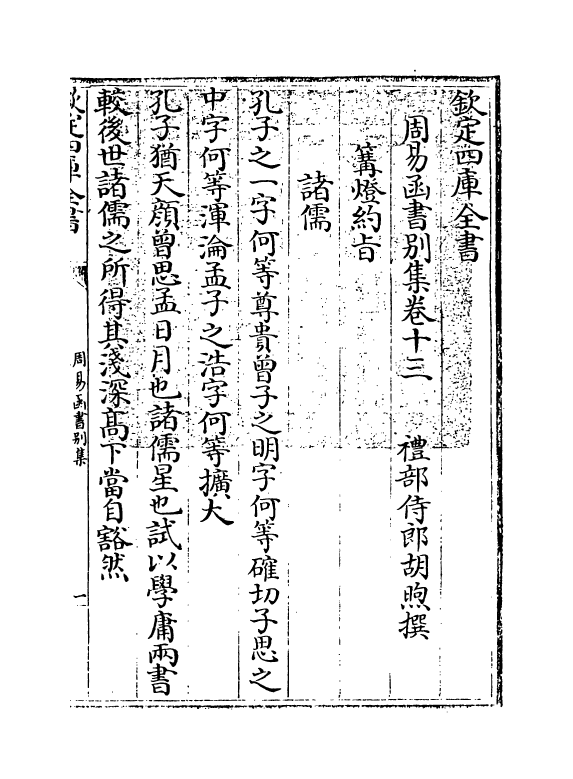 欽定四庫全書
周易函書別集卷十三 禮部侍郎胡煦撰
篝燈約旨
諸儒
孔子之一字何等尊貴曾子之明字何等確切子思之
中字何等渾淪孟子之浩字何等擴大
孔子猶天顔曾思孟日月也諸儒星也試以學庸兩書
較後世諸儒之所得其淺深髙下當自豁然
欽定四庫全書
周易函書別集
一